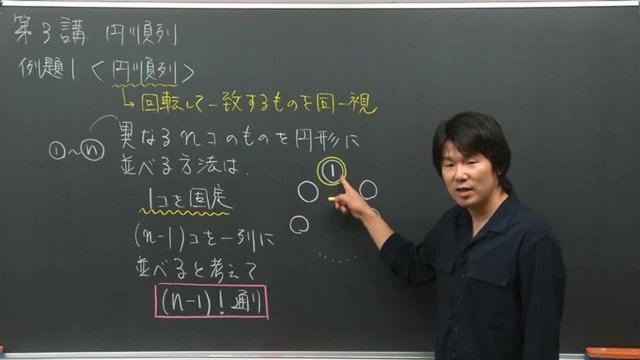 第3講 円順列
例題1 <円順列>
↳回転して一致するものを同一視
①~ⓝ
異なるnコのものを円形に
並べる方法は、
1コを固定
(n-1)コを一列に
並べると考えて
(n-1)!通り
①